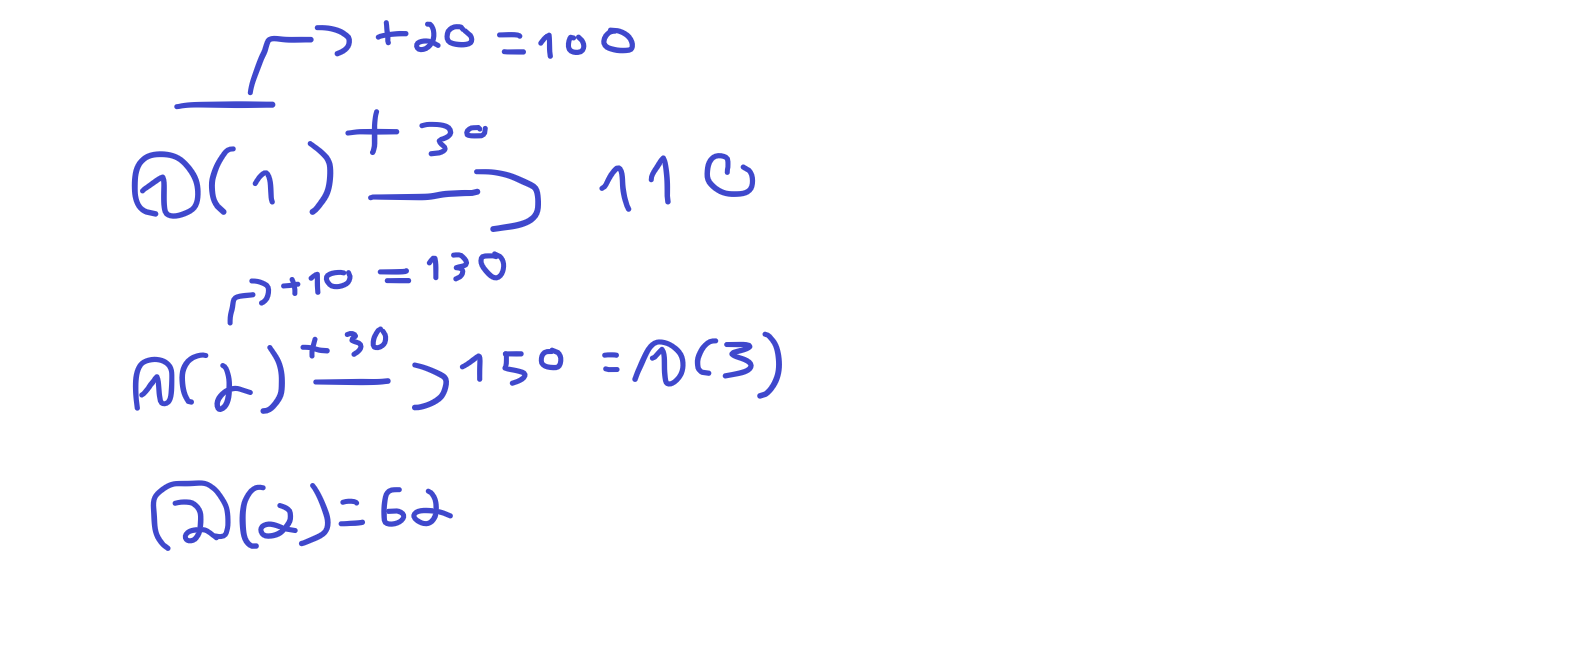 +20 = 100
①(1) +30 → 110
→ +10 = 130
①(2) +30 → 150 = ①(3)
②(2) = 62